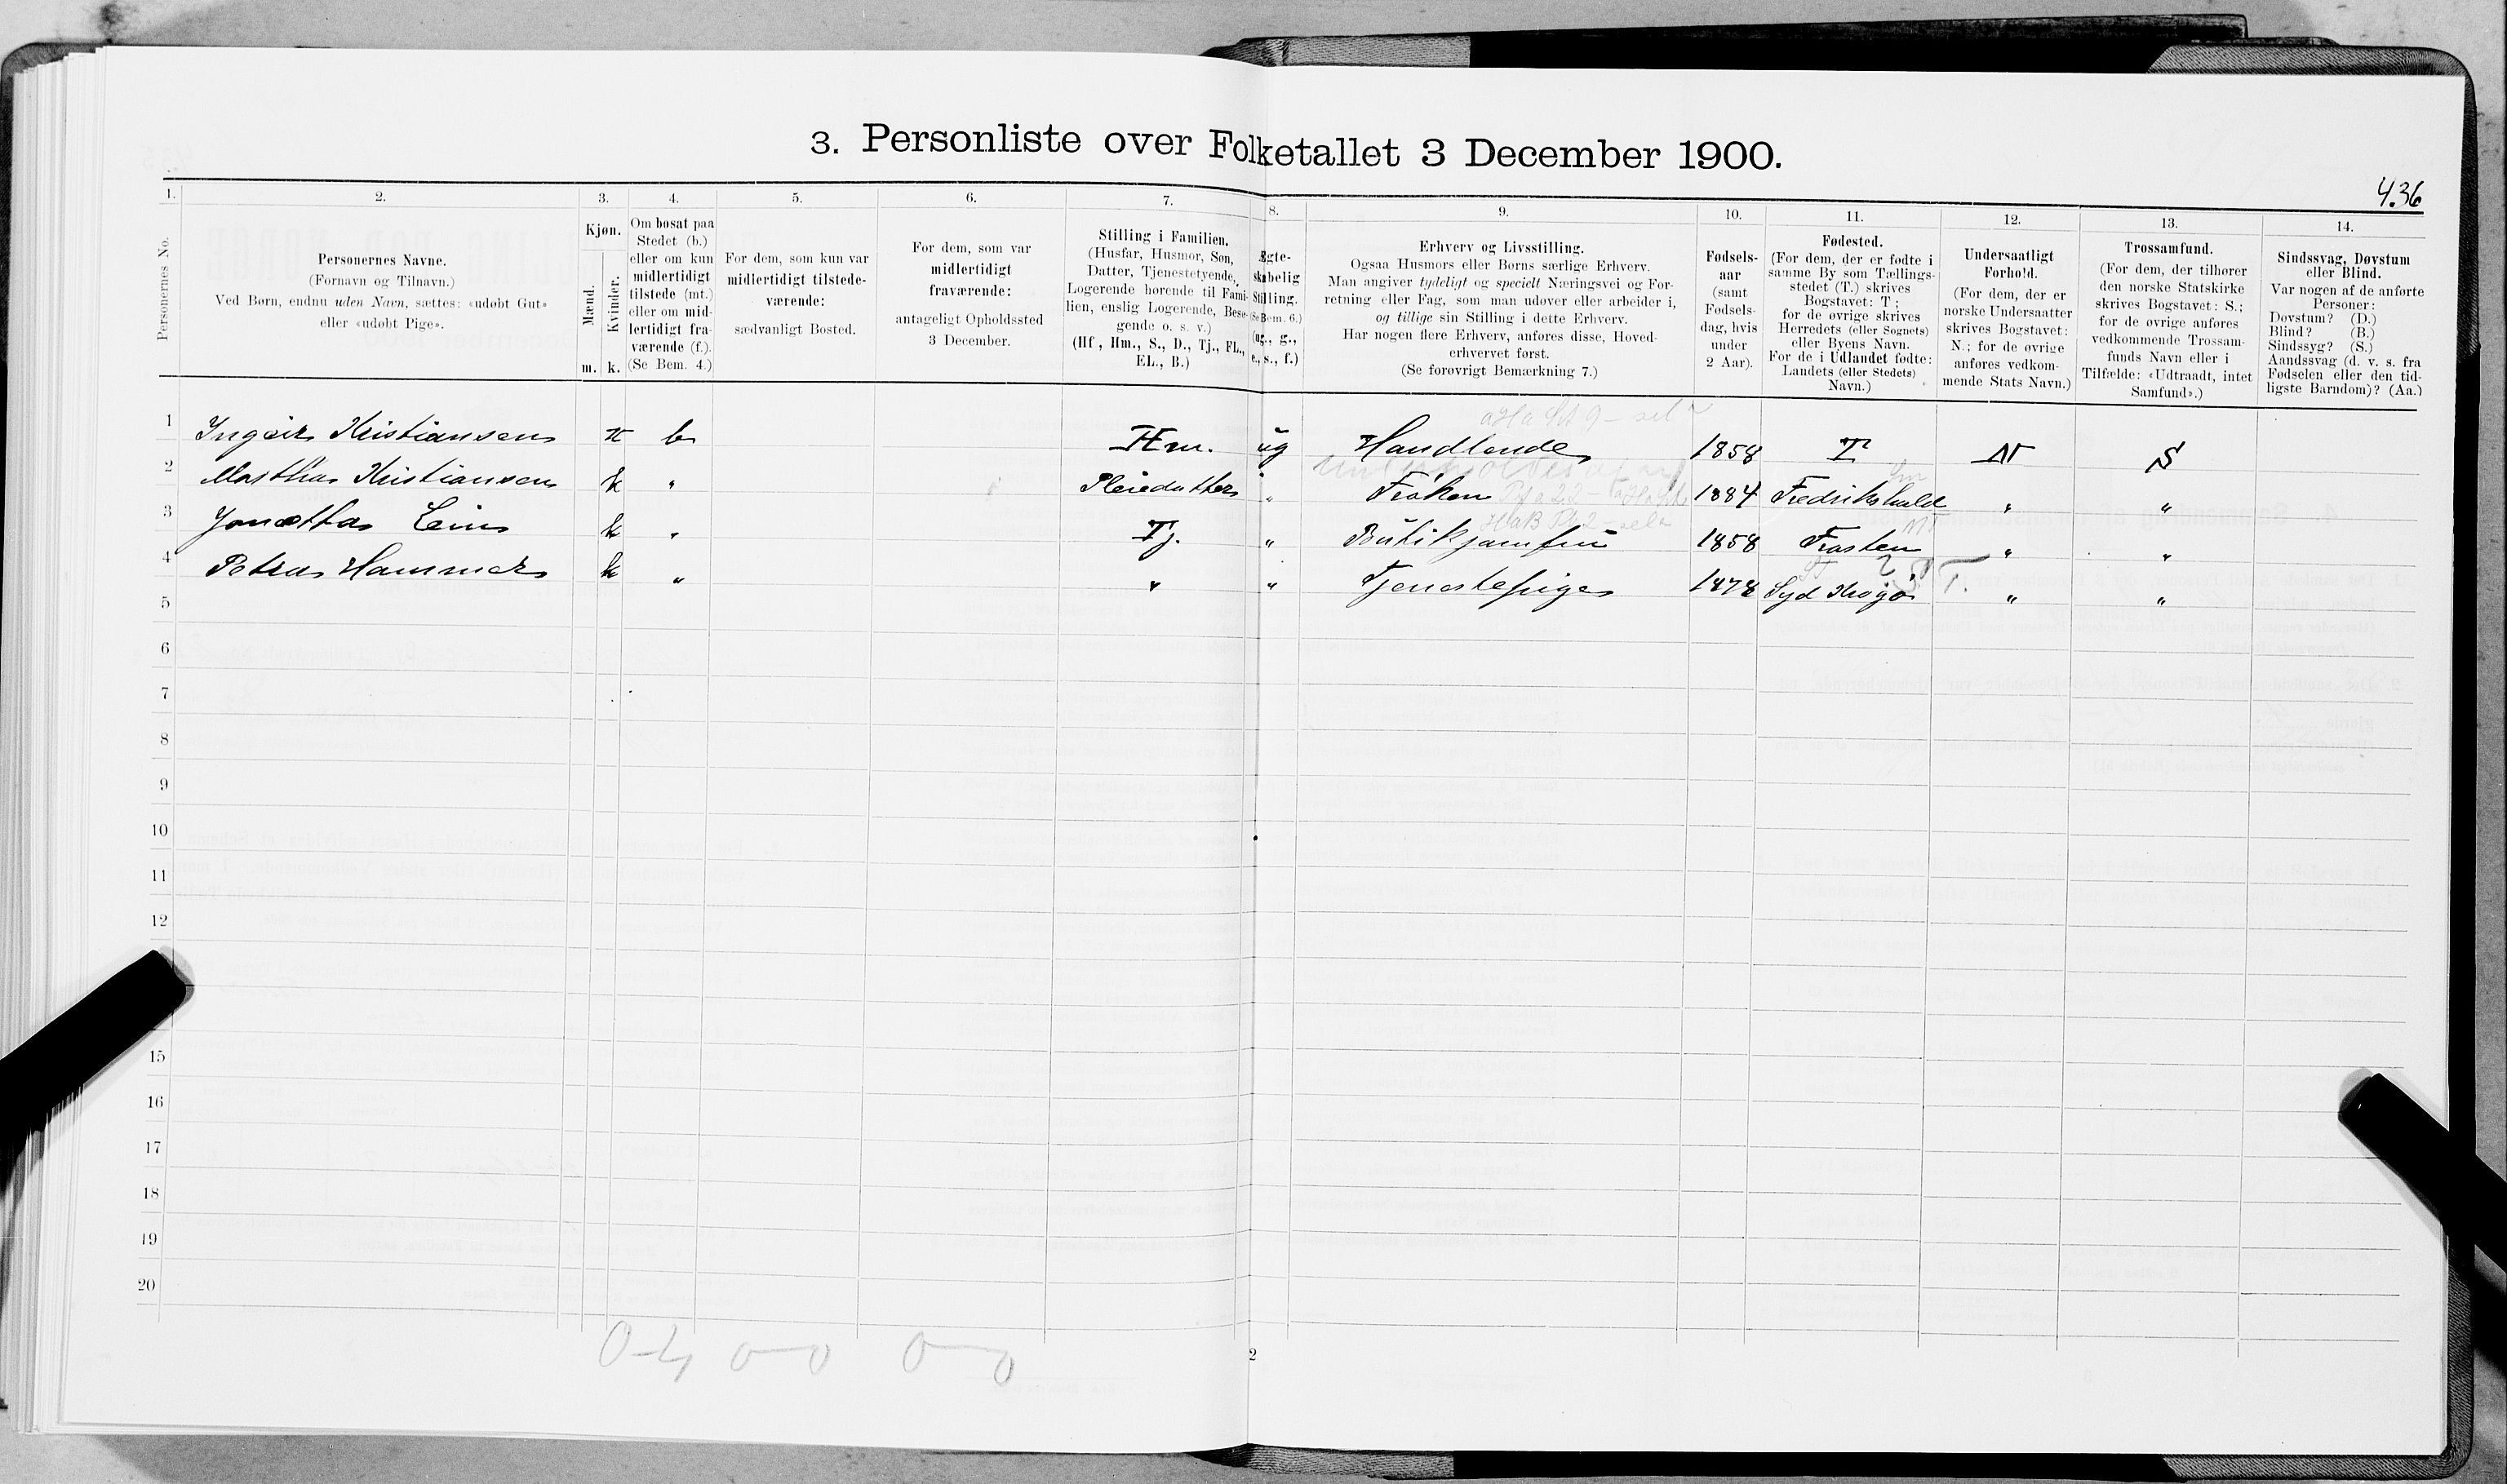 3. Personliste over Folketallet 3 December 1900.
436
1. 2. 3. 4. 5. 6. 7. 8. 9. 10. 11. 12. 13. 14.
Personernes No.
Personernes Navne.
(Fornavn og Tilnavn.)
Ved Børn, endnu uden Navn, sættes: «udøbt Gut»
eller «udøbt Pige».
Kjøn.
Mænd.
Kvinder.
m. k.
Om bosat paa
Stedet (b.)
eller om kun
midlertidigt
tilstede (mt.)
eller om mid-
lertidigt fra-
værende (f.).
(Se Bem. 4.)
For dem, som kun var
midlertidigt tilstede-
værende:
sædvanligt Bosted.
For dem, som var
midlertidigt
fraværende:
antageligt Opholdssted
3 December.
Stilling i Familien.
(Husfar, Husmor, Søn,
Datter, Tjenestetyende,
Logerende hørende til Fami-
lien, enslig Logerende, Besø-
gende o. s. v.)
(Hf., Hm., S., D., Tj., FL.,
EL., B.)
Ægte-
skabelig
Stilling.
(Se Bem. 6.)
(ug., g.,
e., s., f.)
Erhverv og Livsstilling.
Ogsaa Husmors eller Børns særlige Erhverv.
Man angiver tydeligt og specielt Næringsvei og For-
retning eller Fag, som man udøver eller arbeider i,
og tillige sin Stilling i dette Erhverv.
Har nogen flere Erhverv, anføres disse, Hoved-
erhvervet først.
(Se forøvrigt Bemærkning 7.)
Fødsels-
aar
(samt
Fødsels-
dag, hvis
under
2 Aar).
Fødested.
(For dem, der er fødte i
samme By som Tællings-
stedet (T.) skrives
Bogstavet: T;
for de øvrige skrives
Herredets (eller Sognets)
eller Byens Navn.
For de i Udlandet fødte:
Landets (eller Stedets)
Navn.)
Undersaatligt
Forhold.
(For dem, der er
norske Undersaatter
skrives Bogstavet:
N.; for de øvrige
anføres vedkom-
mende Stats Navn.)
Trossamfund.
(For dem, der tilhører
den norske Statskirke
skrives Bogstavet: S.;
for de øvrige anføres
vedkommende Trossam-
funds Navn eller i
Tilfælde: «Udtraadt, intet
Samfund».)
Sindssvag, Døvstum
eller Blind.
Var nogen af de anførte
Personer:
Døvstum? (D.)
Blind? (B.)
Sindssyg? (S.)
Aandssvag (d. v. s. fra
Fødselen eller den tid-
ligste Barndom)? (Aa.)
1 Ingeir Kristiansen k b Hm. ug Handlende 1858 T N S
2 Martha Kristiansen k " Pleiedatter " Frøken 1884 Fredrikshald " "
3 k " Tj. " Butikjomfru 1858 Frosten " "
4 Petra Hammer k " " " Tjenestepige 1878 Syd "  "
5
6
7
8
9
10
11
12
15
16
17
18
19
20
0-4 0-0 0-0
2